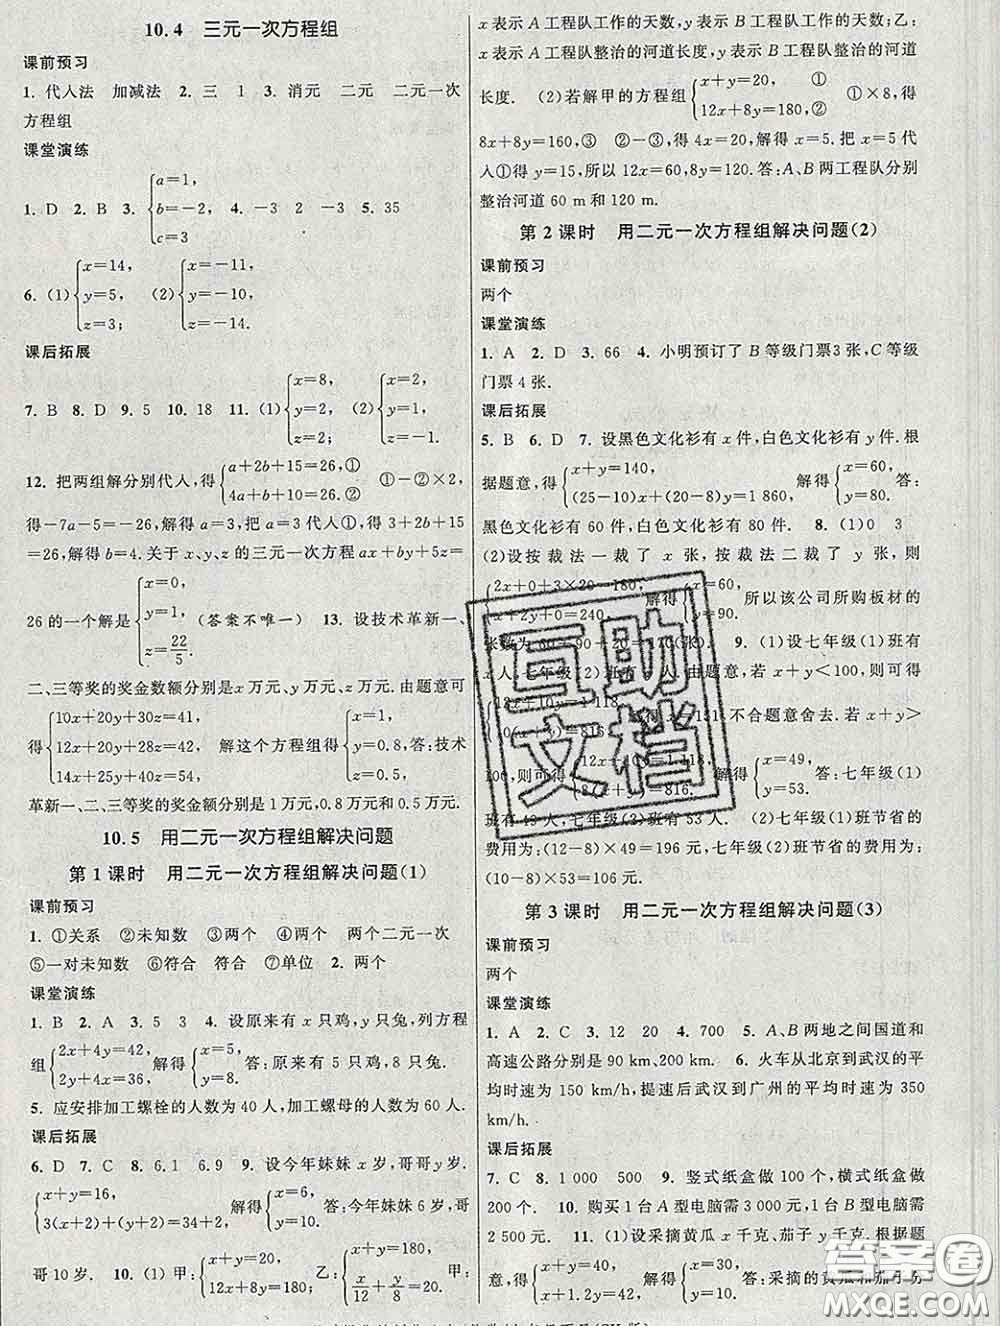 10.4 三元一次方程组
课前预习
1. 代入法 加减法 2. 三 1 3. 消元 二元 二元一次
方程组
课堂演练
1. D 2. B 3. {a=1, b=-2, c=3 4. -3 2 -3 5. 35
6. (1){x=14, y=5, z=3; (2){x=-11, y=-10, z=-14.
课后拓展
7. B 8. D 9. 5 10. 18 11. (1){x=8, y=2, z=2; (2){x=2, y=1, z=-1.
12. 把两组解分别代入,得{a+2b+15=26,① 4a+b+10=26.② ①-②×2,
得-7a-5=-26,解得a=3,把a=3代入①,得3+2b+15
=26,解得b=4.关于x、y、z的三元一次方程ax+by+5z=
26的一个解是{x=0, y=1, z=22/5. (答案不唯一) 13. 设技术革新一、
二、三等奖的奖金数额分别是x万元、y万元、z万元.由题意可
得{10x+20y+30z=41, 12x+20y+28z=42, 14x+25y+40z=54, 解这个方程组得{x=1, y=0.8, z=0.5. 答:技术
革新一、二、三等奖的奖金额分别是1万元、0.8万元和0.5万元.
10.5 用二元一次方程组解决问题
第1课时 用二元一次方程组解决问题(1)
课前预习
1. ①关系 ②未知数 ③两个 ④两个 两个二元一次
⑤一对未知数 ⑥符合 符合 ⑦单位 2. 两个
课堂演练
1. B 2. A 3. 5 3 4. 设原来有x只鸡,y只兔,列方程
组{2x+4y=42, 2y+4x=36, 解得{x=5, y=8. 答:原来有5只鸡,8只兔.
5. 应安排加工螺栓的人数为40人,加工螺母的人数为60人.
课后拓展
6. D 7. C 8. 6.1 6.9 9. 设今年妹妹x岁,哥哥y岁.
{x+y=16, 3(x+2)+(y+2)=34+2, 解得{x=6, y=10. 答:今年妹妹6岁,哥
哥10岁. 10. (1)甲:{x+y=20, 12x+8y=180, 乙:{x+y=180, x/12+y/8=20. 甲:
x表示A工程队工作的天数,y表示B工程队工作的天数;乙:
x表示A工程队整治的河道长度,y表示B工程队整治的河道
长度. (2)若解甲的方程组{x+y=20, ① 12x+8y=180,② ①×8,得
8x+8y=160,③ ②-③,得4x=20,解得x=5.把x=5代
入①得y=15,所以12x=60,8y=120.答:A、B两工程队分别
整治河道60 m和120 m.
第2课时 用二元一次方程组解决问题(2)
课前预习
两个
课堂演练
1. A 2. D 3. 66 4. 小明预订了B等级门票3张,C等级
门票4张.
课后拓展
5. B 6. D 7. 设黑色文化衫有x件,白色文化衫有y件.根
据题意,得{x+y=140, (25-10)x+(20-8)y=1 860, 解得{x=60, y=80. 答:
黑色文化衫有60件,白色文化衫有80件. 8. (1)0 3
(2)设按裁法一裁了x张,按裁法二裁了y张,则
{2x+0+3×20=180, x+2y+0=240, 解得{x=60, y=90. 所以该公司所购板材的
张数为60+90+20=170(张). 9. (1)设七年级(1)班有
x人,七年级(2)班有y人.由题意,若x+y<100,则可得
{12x+10y=1 118, 10(x+y)=816 不合题意舍去.若x+y>
100,则可得{12x+10y=1 118, 8(x+y)=816, 解得{x=49, y=53. 答:七年级(1)
班有49人,七年级(2)班有53人. (2)七年级(1)班节省
的费用为:(12-8)×49=196元,七年级(2)班节省的费用为:
(10-8)×53=106元.
第3课时 用二元一次方程组解决问题(3)
课前预习
两个
课堂演练
1. A 2. C 3. 12 20 4. 700 5. A、B两地之间国道和
高速公路分别是90 km、200 km. 6. 火车从北京到武汉的平
均时速为150 km/h,提速后武汉到广州的平均时速为350
km/h.
课后拓展
7. C 8. 1 000 500 9. 竖式纸盒做100个,横式纸盒做
200个. 10. 购买1台A型电脑需3 000元,1台B型电脑需
2 500元. 11. (1)设采摘黄瓜x千克、茄子y千克.根据题
意,得{x+y=40, 解得{x=30, y=10. 答:采摘的黄瓜和茄子分
互助
文档
答案圈
MXQE.COM